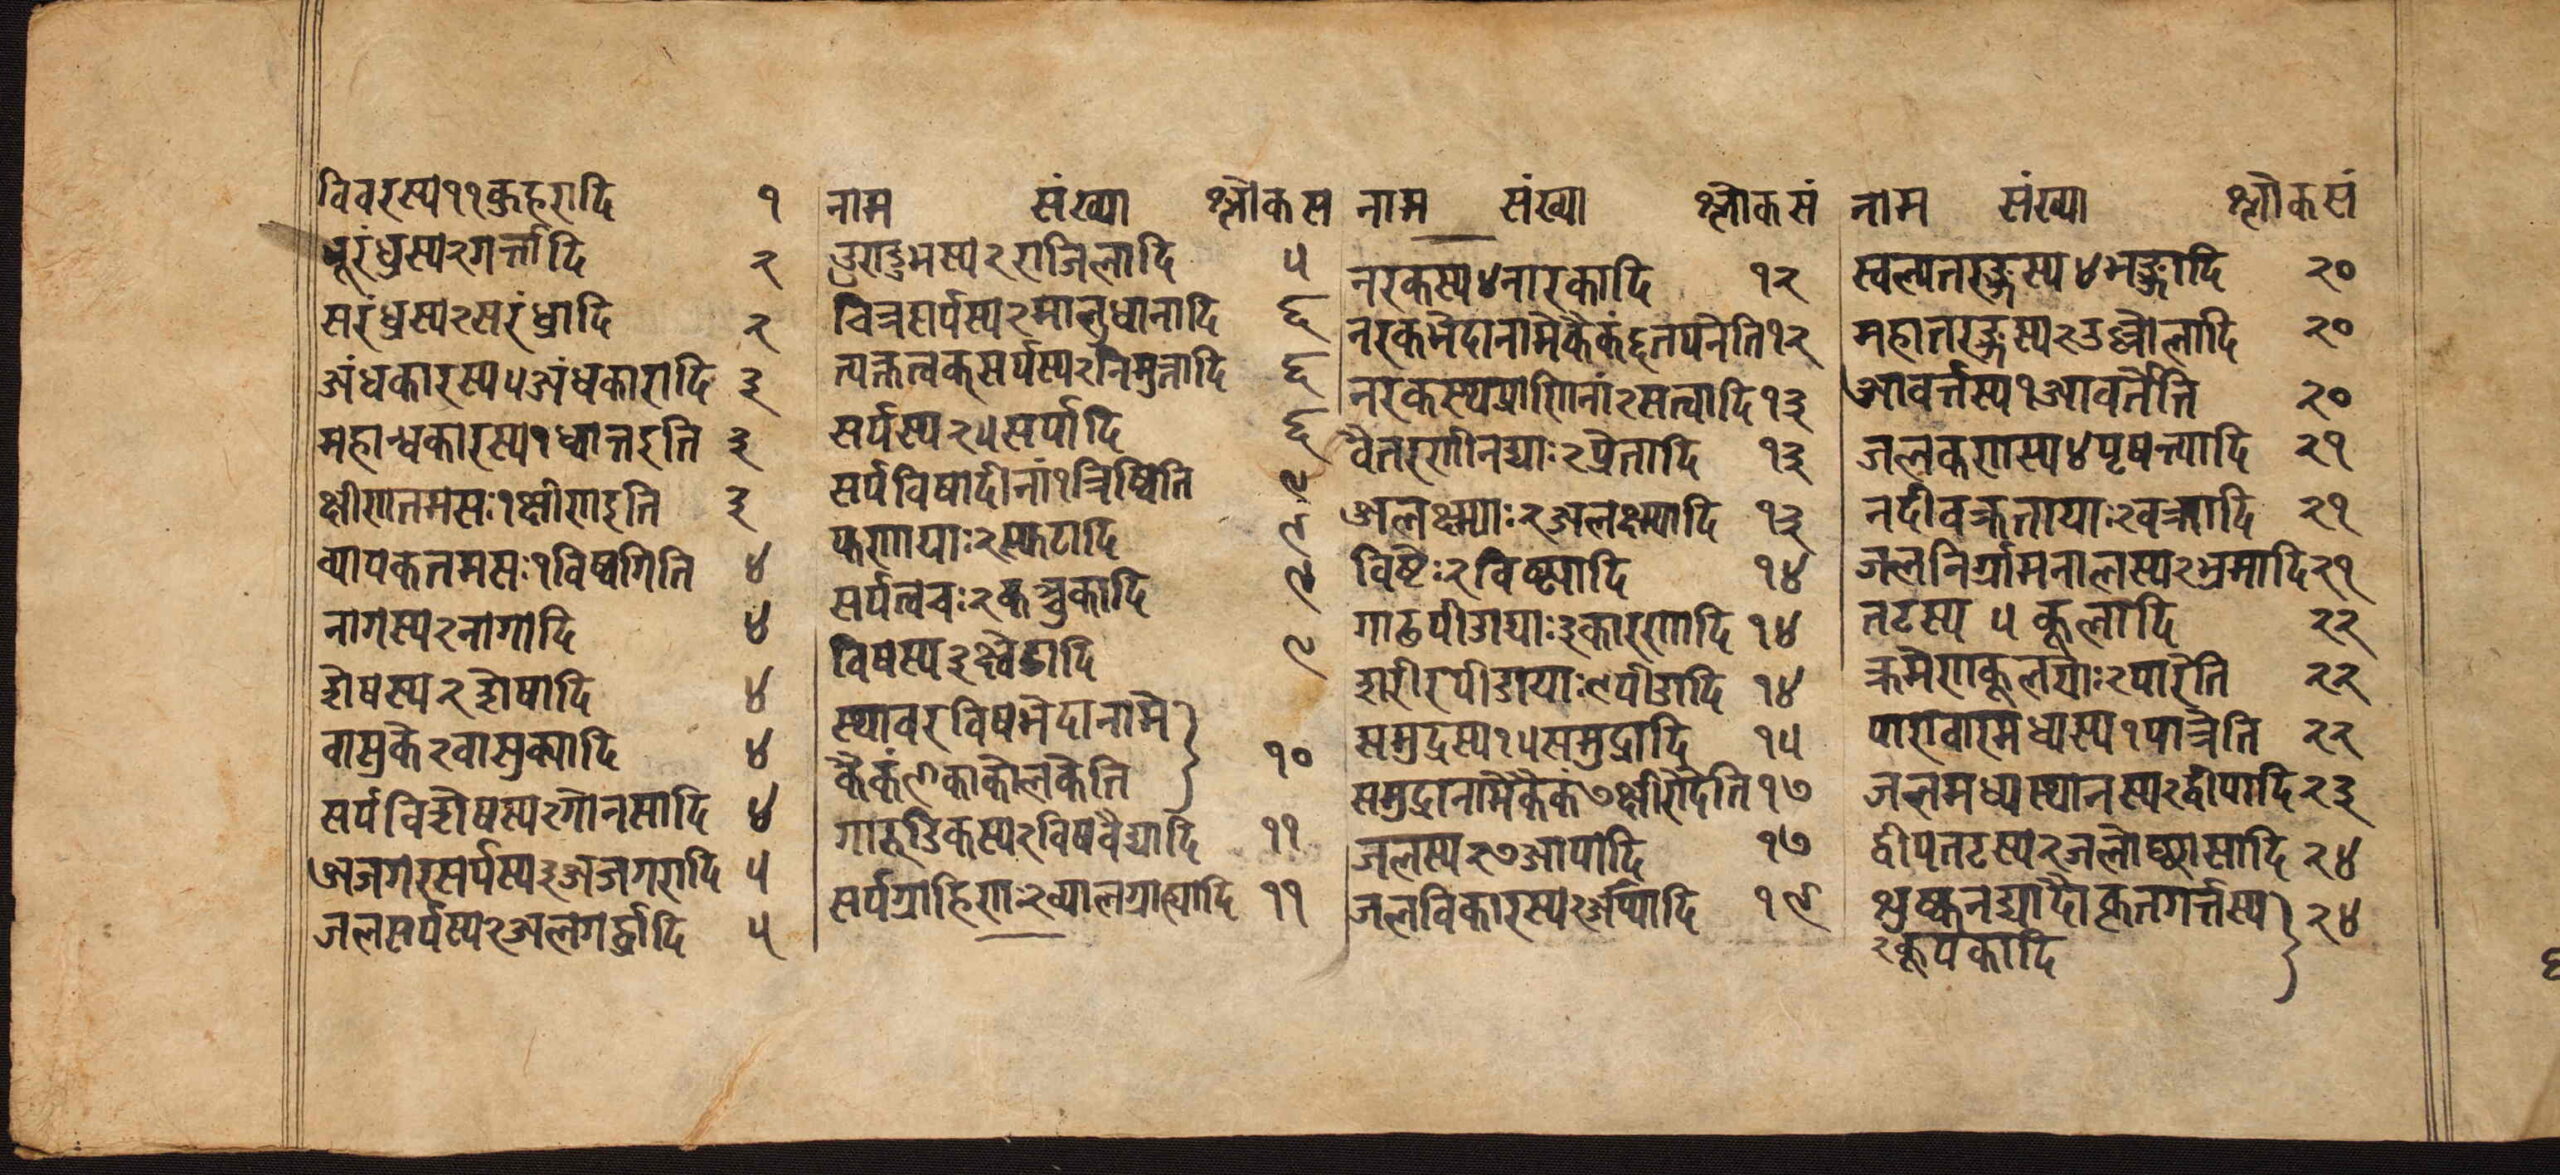 विवरस्य ११ कुहरादि १
भूरंध्रस्य २ गर्त्तादि २
सरंध्रस्य २ सरंध्रादि २
अंधकारस्य ५ अंधकारादि ३
महान्धकारस्य १ ध्वान्तइति ३
क्षीणतमसः १ क्षीणइति ३
व्यापकतमसः १ विष्वगिति ४
नागस्य २ नागादि ४
शेषस्य २ शेषादि ४
वासुके २ वासुक्यादि ४
सर्पविशेषस्य २ गोनसादि ४
अजगरसर्पस्य ३ अजगरादि ५
जलसर्पस्य २ अलगर्द्धादि ५
नाम संख्या श्लोकस
डुराडुभस्य २ राजिलादि ५
चित्रसर्पस्य २ मालुधानादि ६
त्यक्तत्वक्सर्पस्य २ निमुक्तादि ६
सर्पस्य २५ सर्पादि ६
सर्पविषादीनां १ त्रिष्विति ९
फणायाः २ स्फटादि ९
सर्पत्वचः २ कञ्चुकादि ९
विषस्य ३ क्ष्वेडादि ९
स्थावरविषभेदानामे
कैकं ९ काकोलकेति १०
गारुडिकस्य २ विषवैद्यादि ११
सर्पग्राहिणः २ व्यालग्राह्यादि ११
नाम संख्या श्लोकसं
नरकस्य ४ नारकादि १२
नरकभेदानामेकैकं ६ तपनेति १२
नरकस्थप्राणिनां २ सत्वादि १३
वैतरणीनद्याः २ प्रेतादि १३
अलक्ष्म्याः २ अलक्ष्म्यादि १३
विष्टेः २ विष्ट्यादि १४
गाढपीडायाः ३ कारणादि १४
शरीरपीडायाः ९ पीडादि १४
समुद्रस्य १५ समुद्रादि १५
समुद्रानामेकैकं ७ क्षीरोदेति १७
जलस्य २७ आपादि १७
जलविकारस्य २ अप्यादि १९
नाम संख्या श्लोकसं
स्वल्पतरङ्गस्य ४ भङ्गादि २०
महातरङ्गस्य २ उल्लोलादि २०
आवर्त्तस्य १ आवर्तेति २०
जलकणस्य ४ पृषन्त्यादि २१
नदीवक्रतायाः २ वक्रादि २१
जलनिर्ग्गमनालस्य २ भ्रमादि २१
तटस्य ५ कूलादि २२
क्रमेणकूलयोः २ पारेति २२
पारावारमध्यस्य १ पात्रेति २२
जलमध्यस्थानस्य २ द्वीपादि २३
द्वीपतटस्य २ जलोच्छ्वासादि २४
शुष्कनद्यादौकृतगर्त्तस्य २४
२ कूपकादि